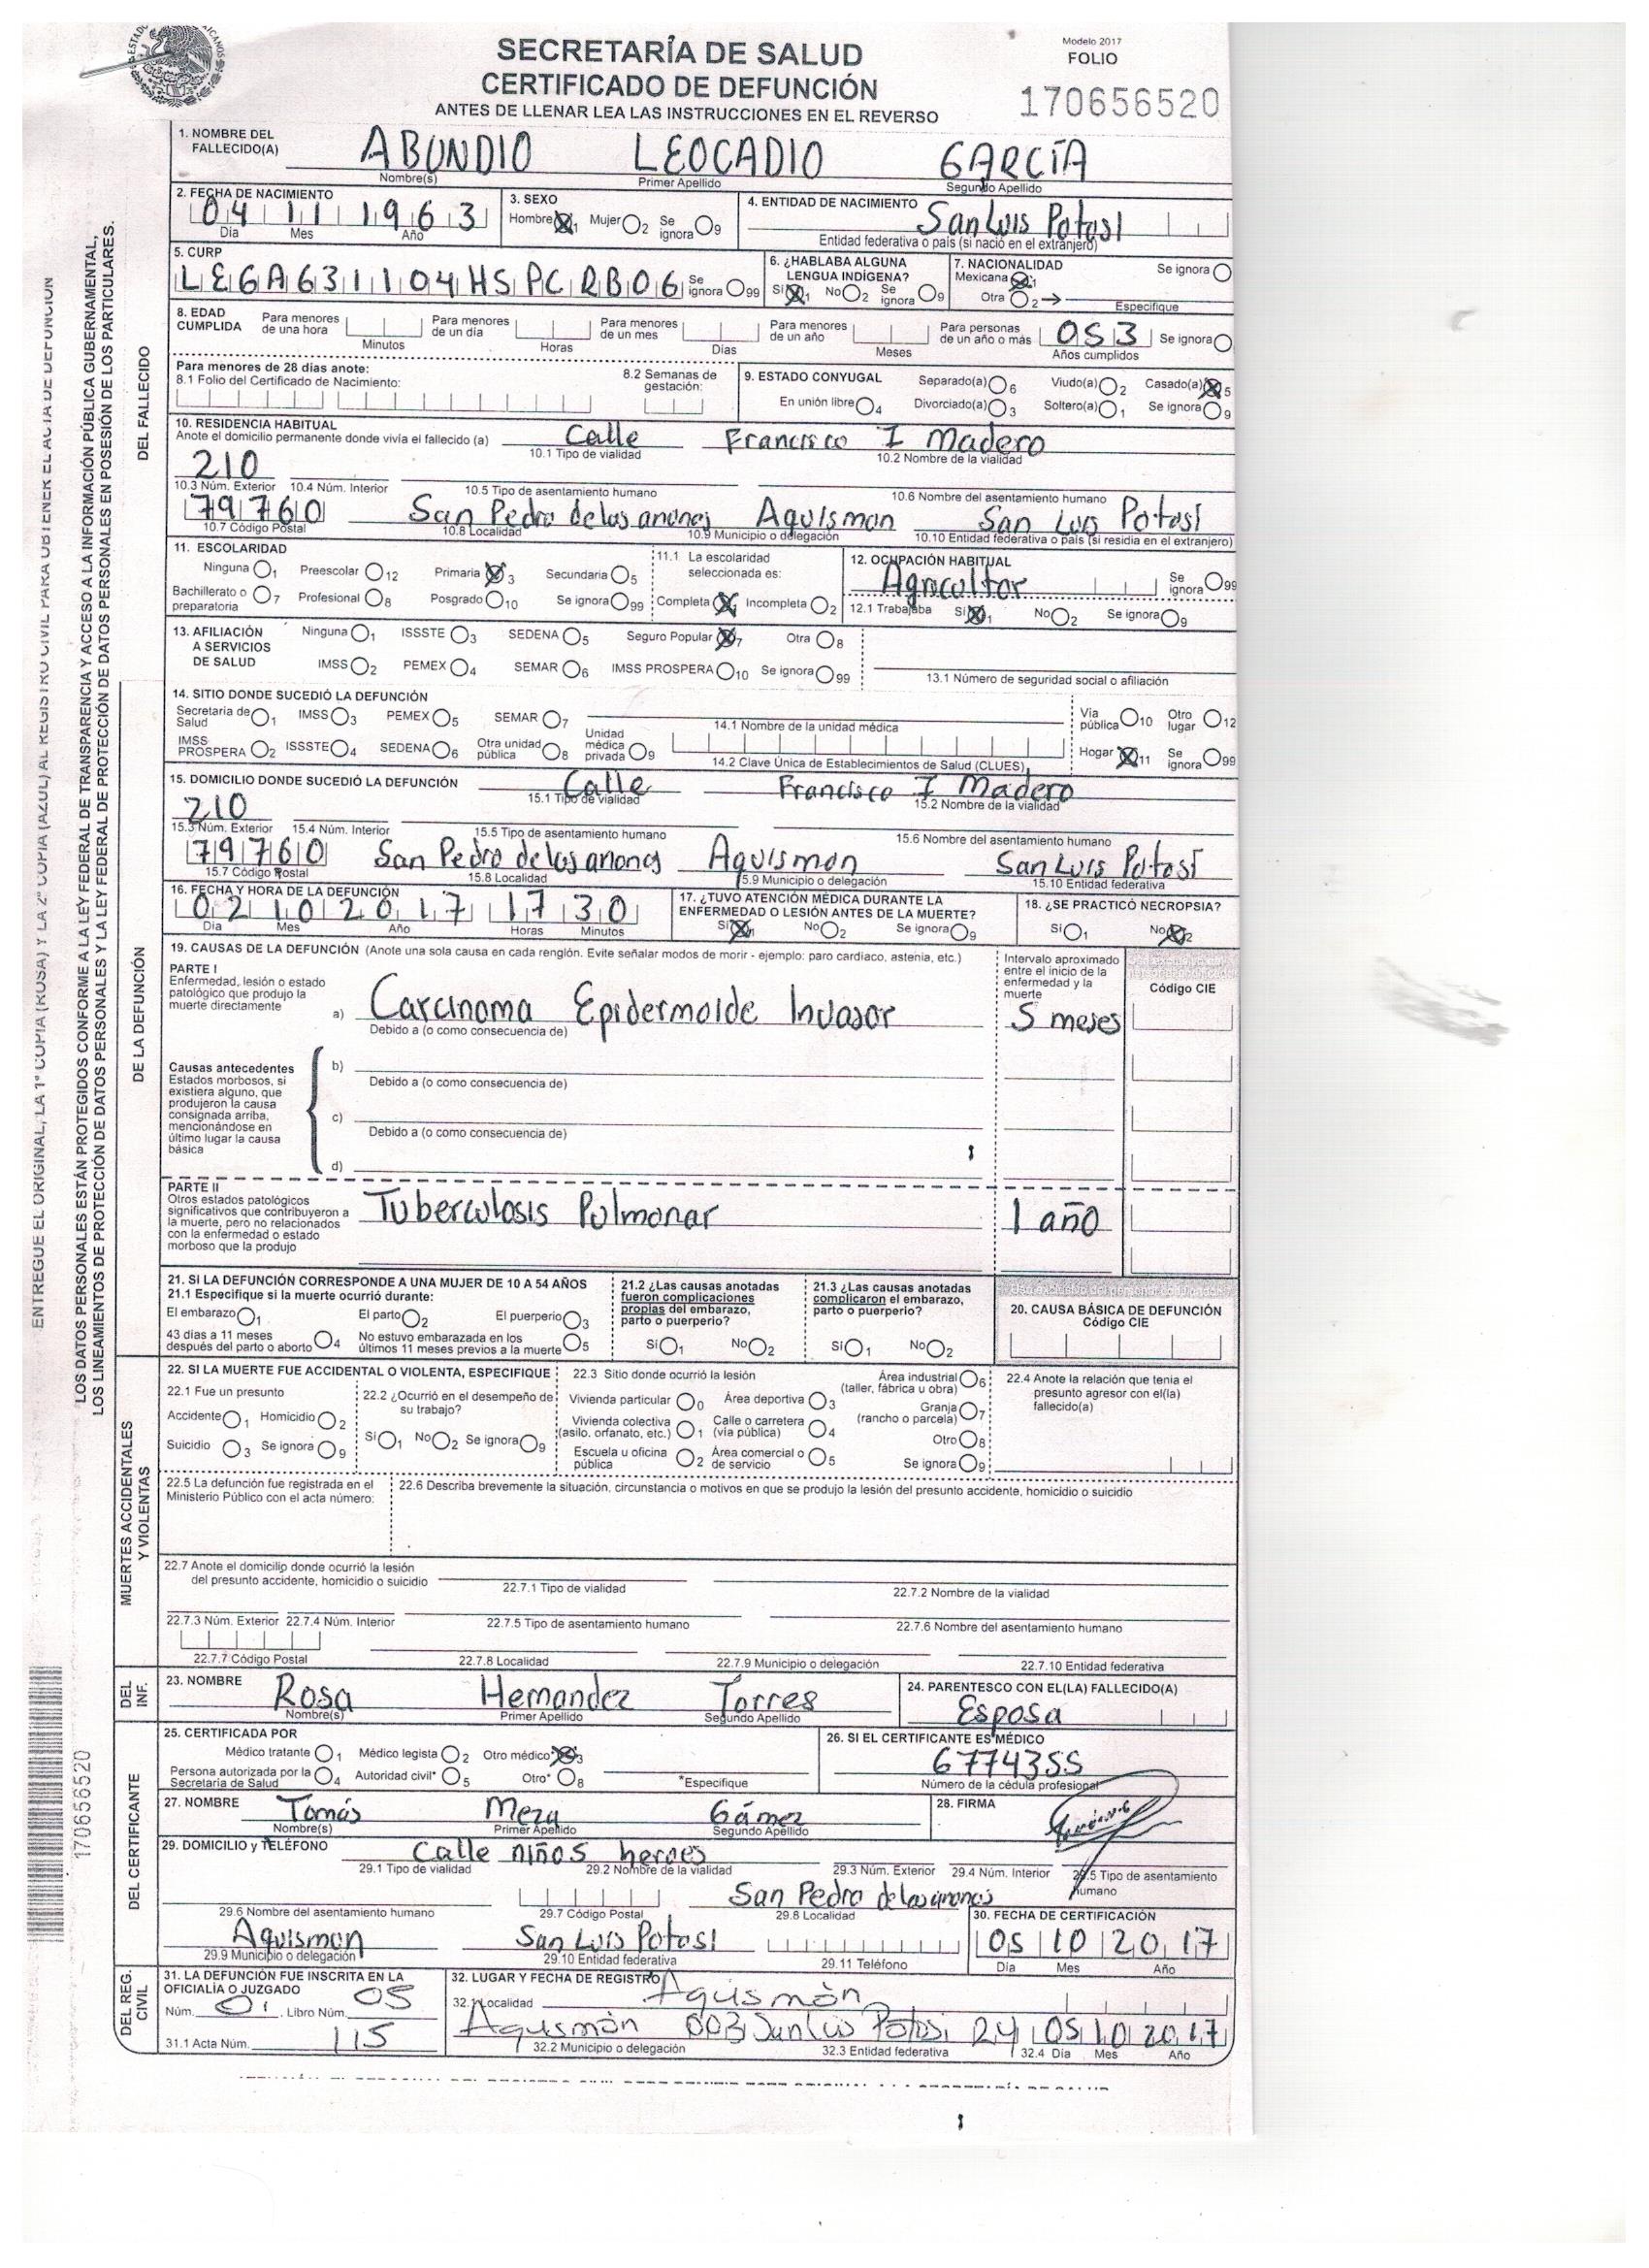 SECRETARÍA DE SALUD
CERTIFICADO DE DEFUNCIÓN
ANTES DE LLENAR LEA LAS INSTRUCCIONES EN EL REVERSO
Modelo 2017
FOLIO
170656520
1. NOMBRE DEL FALLECIDO(A) ABUNDIO LEOCADIO GARCÍA
Nombre(s) Primer Apellido Segundo Apellido
2. FECHA DE NACIMIENTO 04 11 1963
Día Mes Año
3. SEXO Hombre 1 Mujer 2 Se ignora 9
4. ENTIDAD DE NACIMIENTO San Luis Potosí
Entidad federativa o país (si nació en el extranjero)
5. CURP LEGA631104HSPCRB06 Se ignora 99
6. ¿HABLABA ALGUNA LENGUA INDÍGENA? Sí 1 No 2 Se ignora 9
7. NACIONALIDAD Mexicana 1 Otra 2 Especifique Se ignora
8. EDAD CUMPLIDA Para menores de una hora Minutos Para menores de un día Horas Para menores de un mes Días Para menores de un año Meses Para personas de un año o más 053 Años cumplidos Se ignora
Para menores de 28 días anote:
8.1 Folio del Certificado de Nacimiento:
8.2 Semanas de gestación:
9. ESTADO CONYUGAL Separado(a) 6 Viudo(a) 2 Casado(a) 5
En unión libre 4 Divorciado(a) 3 Soltero(a) 1 Se ignora 9
10. RESIDENCIA HABITUAL
Anote el domicilio permanente donde vivía el fallecido (a) Calle Francisco I Madero
10.1 Tipo de vialidad 10.2 Nombre de la vialidad
210
10.3 Núm. Exterior 10.4 Núm. Interior 10.5 Tipo de asentamiento humano 10.6 Nombre del asentamiento humano
79760 San Pedro de las anonas Aquismon San Luis Potosí
10.7 Código Postal 10.8 Localidad 10.9 Municipio o delegación 10.10 Entidad federativa o país (si residia en el extranjero)
11. ESCOLARIDAD
Ninguna 1 Preescolar 12 Primaria 3 Secundaria 5
Bachillerato o preparatoria 7 Profesional 8 Posgrado 10 Se ignora 99
11.1 La escolaridad seleccionada es:
Completa 1 Incompleta 2
12. OCUPACIÓN HABITUAL Agricultor Se ignora 99
12.1 Trabajaba Sí 1 No 2 Se ignora 9
13. AFILIACIÓN A SERVICIOS DE SALUD
Ninguna 1 ISSSTE 3 SEDENA 5 Seguro Popular 7 Otra 8
IMSS 2 PEMEX 4 SEMAR 6 IMSS PROSPERA 10 Se ignora 99
13.1 Número de seguridad social o afiliación
14. SITIO DONDE SUCEDIÓ LA DEFUNCIÓN
Secretaria de Salud 1 IMSS 3 PEMEX 5 SEMAR 7 14.1 Nombre de la unidad médica Vía pública 10 Otro lugar 12
IMSS PROSPERA 2 ISSSTE 4 SEDENA 6 Otra unidad pública 8 Unidad médica privada 9 14.2 Clave Única de Establecimientos de Salud (CLUES) Hogar 11 Se ignora 99
15. DOMICILIO DONDE SUCEDIÓ LA DEFUNCIÓN Calle Francisco I Madero
15.1 Tipo de vialidad 15.2 Nombre de la vialidad
210
15.3 Núm. Exterior 15.4 Núm. Interior 15.5 Tipo de asentamiento humano 15.6 Nombre del asentamiento humano
79760 San Pedro de las anonas Aquismon San Luis Potosí
15.7 Código Postal 15.8 Localidad 15.9 Municipio o delegación 15.10 Entidad federativa
16. FECHA Y HORA DE LA DEFUNCIÓN
02 10 2017 17 30
Día Mes Año Horas Minutos
17. ¿TUVO ATENCIÓN MÉDICA DURANTE LA ENFERMEDAD O LESIÓN ANTES DE LA MUERTE?
Sí 1 No 2 Se ignora 9
18. ¿SE PRACTICÓ NECROPSIA?
Sí 1 No 2
19. CAUSAS DE LA DEFUNCIÓN (Anote una sola causa en cada renglón. Evite señalar modos de morir - ejemplo: paro cardiaco, astenia, etc.)
Intervalo aproximado entre el inicio de la enfermedad y la muerte
Código CIE
PARTE I
Enfermedad, lesión o estado patológico que produjo la muerte directamente
a) Carcinoma Epidermoide Invasor 5 meses
Debido a (o como consecuencia de)
Causas antecedentes
Estados morbosos, si existiera alguno, que produjeron la causa consignada arriba, mencionándose en último lugar la causa básica
b)
Debido a (o como consecuencia de)
c)
Debido a (o como consecuencia de)
d)
PARTE II
Otros estados patológicos significativos que contribuyeron a la muerte, pero no relacionados con la enfermedad o estado morboso que la produjo
Tuberculosis Pulmonar 1 año
21. SI LA DEFUNCIÓN CORRESPONDE A UNA MUJER DE 10 A 54 AÑOS
21.1 Especifique si la muerte ocurrió durante:
El embarazo 1 El parto 2 El puerperio 3
43 días a 11 meses después del parto o aborto 4 No estuvo embarazada en los últimos 11 meses previos a la muerte 5
21.2 ¿Las causas anotadas fueron complicaciones propias del embarazo, parto o puerperio?
Sí 1 No 2
21.3 ¿Las causas anotadas complicaron el embarazo, parto o puerperio?
Sí 1 No 2
20. CAUSA BÁSICA DE DEFUNCIÓN
Código CIE
22. SI LA MUERTE FUE ACCIDENTAL O VIOLENTA, ESPECIFIQUE
22.1 Fue un presunto
Accidente 1 Homicidio 2
Suicidio 3 Se ignora 9
22.2 ¿Ocurrió en el desempeño de su trabajo?
Sí 1 No 2 Se ignora 9
22.3 Sitio donde ocurrió la lesión
Vivienda particular 0 Área deportiva 3 Área industrial (taller, fábrica u obra) 6
Vivienda colectiva (asilo, orfanato, etc.) 1 Calle o carretera (vía pública) 4 Granja (rancho o parcela) 7
Otro 8
Escuela u oficina pública 2 Área comercial o de servicio 5 Se ignora 9
22.4 Anote la relación que tenia el presunto agresor con el(la) fallecido(a)
22.5 La defunción fue registrada en el Ministerio Público con el acta número:
22.6 Describa brevemente la situación, circunstancia o motivos en que se produjo la lesión del presunto accidente, homicidio o suicidio
22.7 Anote el domicilio donde ocurrió la lesión del presunto accidente, homicidio o suicidio
22.7.1 Tipo de vialidad 22.7.2 Nombre de la vialidad
22.7.3 Núm. Exterior 22.7.4 Núm. Interior 22.7.5 Tipo de asentamiento humano 22.7.6 Nombre del asentamiento humano
22.7.7 Código Postal 22.7.8 Localidad 22.7.9 Municipio o delegación 22.7.10 Entidad federativa
23. NOMBRE Rosa Hernandez Torres
Nombre(s) Primer Apellido Segundo Apellido
24. PARENTESCO CON EL(LA) FALLECIDO(A)
Esposa
25. CERTIFICADA POR
Médico tratante 1 Médico legista 2 Otro médico* 3
Persona autorizada por la Secretaría de Salud 4 Autoridad civil* 5 Otro* 8 *Especifique
26. SI EL CERTIFICANTE ES MÉDICO
6774355
Número de la cédula profesional
27. NOMBRE Tomás Meza Gámez
Nombre(s) Primer Apellido Segundo Apellido
28. FIRMA
29. DOMICILIO y TELÉFONO Calle niños heroes
29.1 Tipo de vialidad 29.2 Nombre de la vialidad 29.3 Núm. Exterior 29.4 Núm. Interior 29.5 Tipo de asentamiento humano
San Pedro de las anonas
29.6 Nombre del asentamiento humano 29.7 Código Postal 29.8 Localidad
Aquismon San Luis Potosí
29.9 Municipio o delegación 29.10 Entidad federativa 29.11 Teléfono
30. FECHA DE CERTIFICACIÓN
05 10 2017
Día Mes Año
31. LA DEFUNCIÓN FUE INSCRITA EN LA OFICIALÍA O JUZGADO
Núm. 01 Libro Núm. 05
31.1 Acta Núm. 115
32. LUGAR Y FECHA DE REGISTRO
32.1 Localidad Aquismòn
Aquismòn 003 San Luis Potosi 24 05 10 2017
32.2 Municipio o delegación 32.3 Entidad federativa 32.4 Día Mes Año
DEL FALLECIDO
DE LA DEFUNCIÓN
MUERTES ACCIDENTALES Y VIOLENTAS
DEL INF.
DEL CERTIFICANTE
DEL REG. CIVIL
ENTREGUE EL ORIGINAL, LA 1ª COPIA (ROSA) Y LA 2ª COPIA (AZUL) AL REGISTRO CIVIL PARA OBTENER EL ACTA DE DEFUNCIÓN
LOS DATOS PERSONALES ESTÁN PROTEGIDOS CONFORME A LA LEY FEDERAL DE TRANSPARENCIA Y ACCESO A LA INFORMACIÓN PÚBLICA GUBERNAMENTAL,
LOS LINEAMIENTOS DE PROTECCIÓN DE DATOS PERSONALES Y LA LEY FEDERAL DE PROTECCIÓN DE DATOS PERSONALES EN POSESIÓN DE LOS PARTICULARES.
170656520